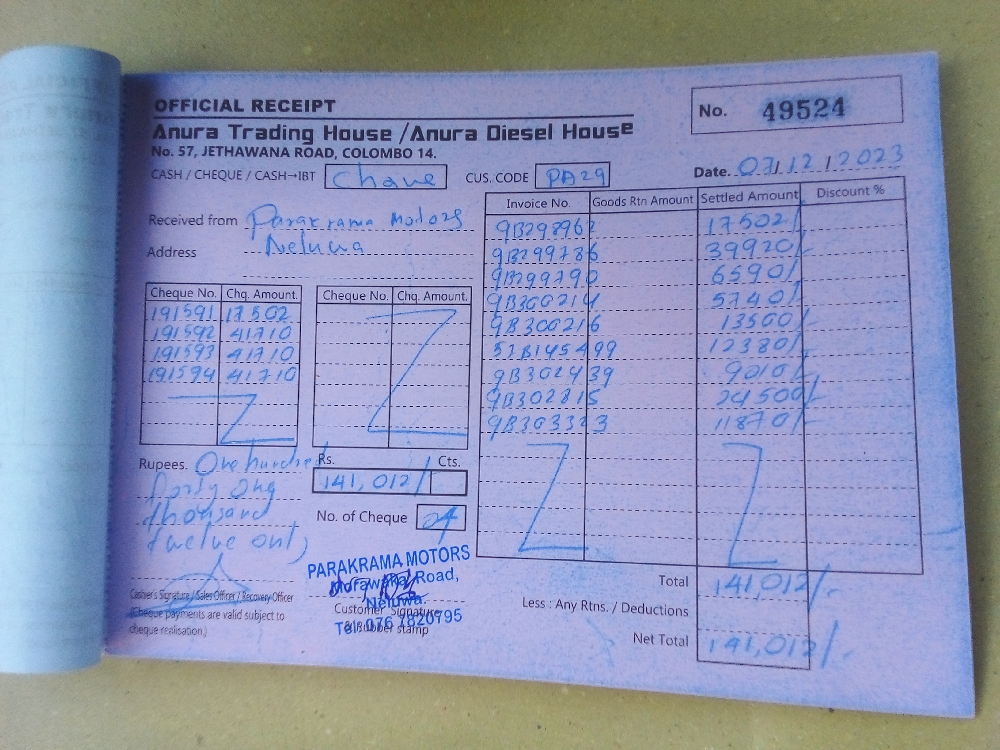 OFFICIAL RECEIPT
No. 49524
Anura Trading House /Anura Diesel House
No. 57, JETHAWANA ROAD, COLOMBO 14.
Date. 07/12/2023
CASH / CHEQUE / CASH→IBT
CUS. CODE PA29
Received from Parakrama Motors
Address Neluwa
Invoice No. Goods Rtn Amount Settled Amount Discount %
9B298962 17502/-
9B299786 39920/-
9B299790 6590/-
9B300214 5740/-
9B300216 13500/-
51B145499 12380/-
9B302439 9010/-
9B302815 24500/-
9B303323 11870/-
Cheque No. Chq. Amount. Cheque No. Chq. Amount.
191591 17502
191592 41710
191593 41710
191594 41710
Rupees. One hundred
forty one
thousand
twelve only
Rs. Cts.
141,012/
No. of Cheque 04
Total 141,012/-
Less : Any Rtns. / Deductions
Net Total 141,012/-
Cashier's Signature / Sales Officer / Recovery Officer
(Cheque payments are valid subject to
cheque realisation.)
PARAKRAMA MOTORS
Morawaka Road,
Neluwa.
Customer Signature
& Rubber stamp
Tel: 076 7820795